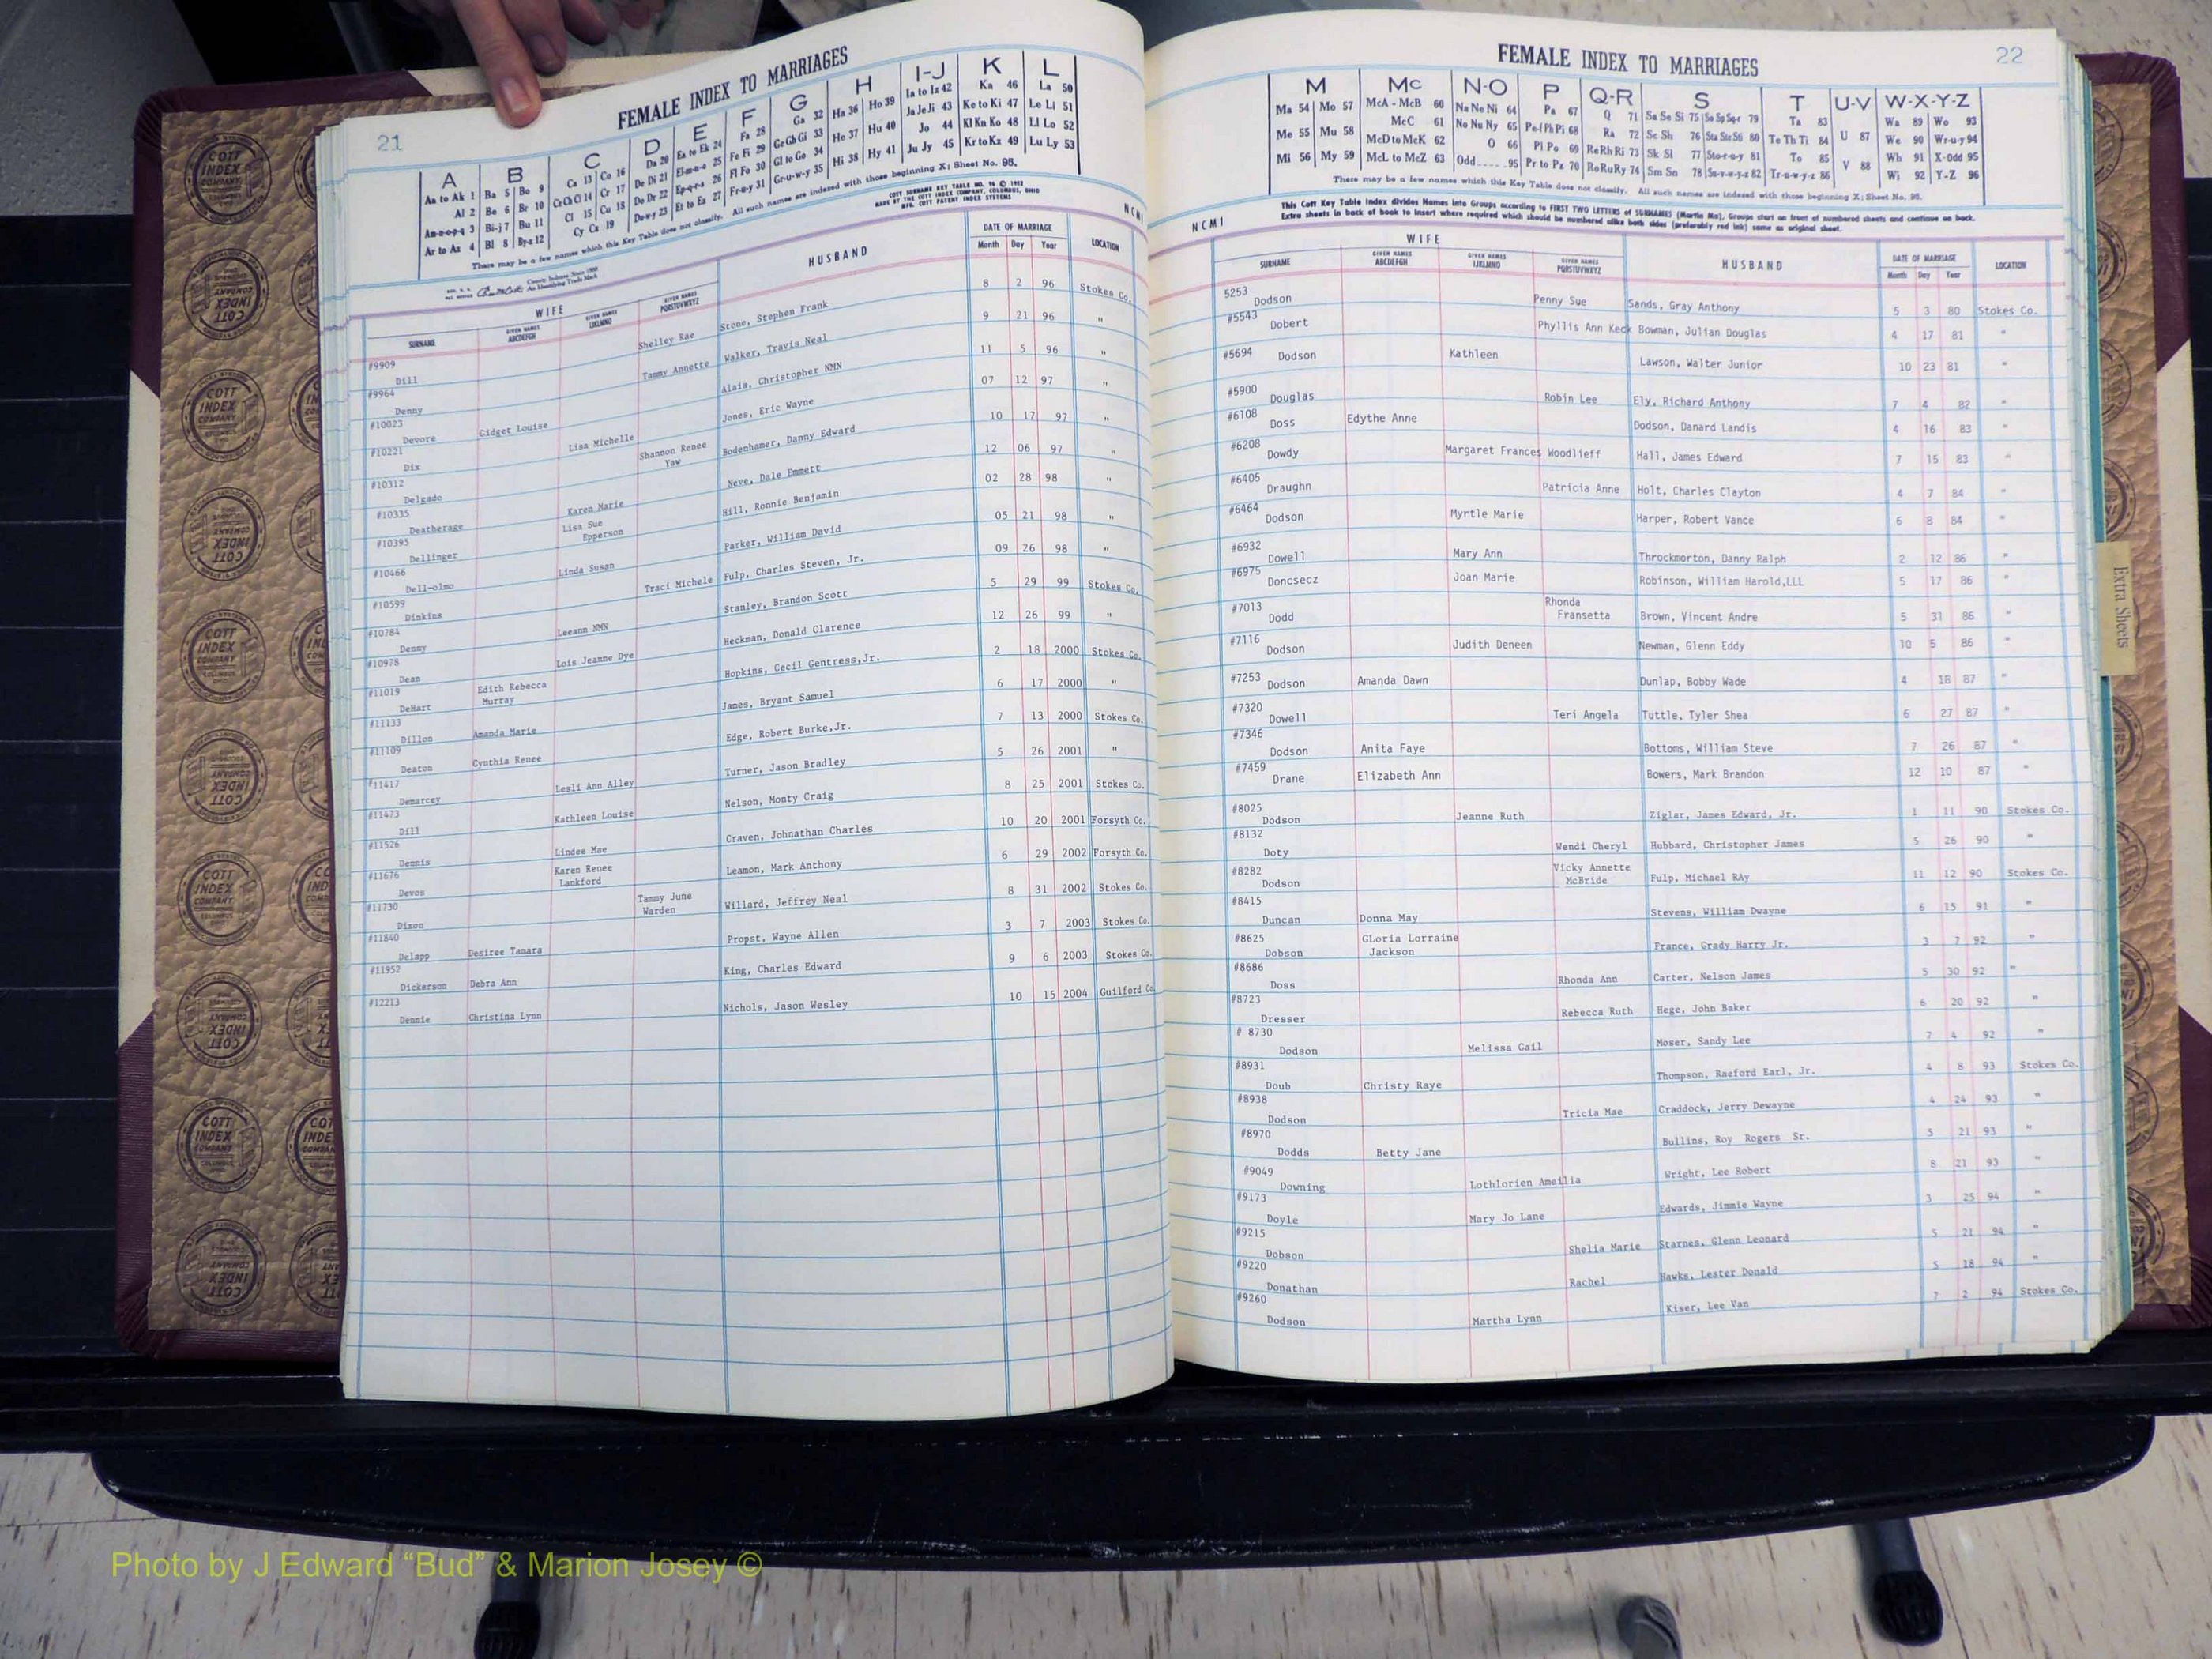 21
FEMALE INDEX TO MARRIAGES
A B C D E F G H I-J K L
Aa to Ak 1 Ba 5 Bo 9 Ca 13 Co 16 Da 20 Ea to Ek 24 Fa 28 Ga 32 Ha 36 Ho 39 Ia to Iz 42 Ka 46 La 50
Al 2 Be 6 Br 10 Ce Ch Ci 14 Cr 17 De Di 21 El-m-n-o 25 Fe Fi 29 Ge Gh Gi 33 He 37 Hu 40 Ja Je Ji 43 Ke to Ki 47 Le Li 51
Am-n-o-p-q 3 Bi-j 7 Bu 11 Cl 15 Cu 18 Do Dr 22 Ep-q-r-s 26 Fl Fo 30 Gl to Go 34 Hi 38 Hy 41 Jo 44 Kl Kn Ko 48 Ll Lo 52
Ar to Az 4 Bl 8 By-z 12 Cy Cz 19 Du-w-y 23 Et to Ez 27 Fr-u-y 31 Gr-u-w-y 35 Ju Jy 45 Kr to Kz 49 Lu Ly 53
There may be a few names which this Key Table does not classify. All such names are indexed with those beginning X; Sheet No. 95.
COTT SURNAME KEY TABLE NO. 96 © 1952
MADE BY THE COTT INDEX COMPANY, COLUMBUS, OHIO
MFR. COTT PATENT INDEX SYSTEMS
NCMI
WIFE HUSBAND DATE OF MARRIAGE LOCATION
SURNAME GIVEN NAMES ABCDEFGH GIVEN NAMES IJKLMNO GIVEN NAMES PQRSTUVWXYZ Month Day Year
#9909 Dill Shelley Rae Stone, Stephen Frank 8 2 96 Stokes Co.
#9964 Denny Tammy Annette Walker, Travis Neal 9 21 96 "
#10023 Devore Gidget Louise Alaia, Christopher NMN 11 5 96 "
#10221 Dix Lisa Michelle Jones, Eric Wayne 07 12 97 "
#10312 Delgado Shannon Renee Yaw Bodenhamer, Danny Edward 10 17 97 "
#10335 Deatherage Karen Marie Neve, Dale Emmett 12 06 97 "
#10395 Dellinger Lisa Sue Epperson Hill, Ronnie Benjamin 02 28 98 "
#10466 Dell-olmo Linda Susan Parker, William David 05 21 98 "
#10599 Dinkins Traci Michele Fulp, Charles Steven, Jr. 09 26 98 "
#10784 Denny Leeann NMN Stanley, Brandon Scott 5 29 99 Stokes Co.
#10978 Dean Lois Jeanne Dye Heckman, Donald Clarence 12 26 99 "
#11019 DeHart Edith Rebecca Murray Hopkins, Cecil Gentress,Jr. 2 18 2000 Stokes Co.
#11133 Dillon Amanda Marie James, Bryant Samuel 6 17 2000 "
#11109 Deaton Cynthia Renee Edge, Robert Burke,Jr. 7 13 2000 Stokes Co.
#11417 Demarcey Lesli Ann Alley Turner, Jason Bradley 5 26 2001 "
#11473 Dill Kathleen Louise Nelson, Monty Craig 8 25 2001 Stokes Co.
#11526 Dennis Lindee Mae Craven, Johnathan Charles 10 20 2001 Forsyth Co.
#11676 Devos Karen Renee Lankford Leamon, Mark Anthony 6 29 2002 Forsyth Co.
#11730 Dixon Tammy June Warden Willard, Jeffrey Neal 8 31 2002 Stokes Co.
#11840 Delapp Desiree Tamara Propst, Wayne Allen 3 7 2003 Stokes Co.
#11952 Dickerson Debra Ann King, Charles Edward 9 6 2003 Stokes Co.
#12213 Dennie Christina Lynn Nichols, Jason Wesley 10 15 2004 Guilford Co
FEMALE INDEX TO MARRIAGES
22
M Mc N-O P Q-R S T U-V W-X-Y-Z
Ma 54 Mo 57 McA - McB 60 Na Ne Ni 64 Pa 67 Q 71 Sa Se Si 75 So Sp Sq-r 79 Ta 83 Wa 89 Wo 93
Me 55 Mu 58 McC 61 No Nu Ny 65 Pe-f Ph Pi 68 Ra 72 Sc Sh 76 Sta Ste Sti 80 Te Th Ti 84 U 87 We 90 Wr-u-y 94
Mi 56 My 59 McD to McK 62 O 66 Pl Po 69 Re Rh Ri 73 Sk Sl 77 Sto-r-u-y 81 To 85 V 88 Wh 91 X-Odd 95
McL to McZ 63 Odd.....95 Pr to Pz 70 Ro Ru Ry 74 Sm Sn 78 Su-v-w-y-z 82 Tr-u-w-y-z 86 Wi 92 Y-Z 96
There may be a few names which this Key Table does not classify. All such names are indexed with those beginning X; Sheet No. 95.
This Cott Key Table Index divides Names into Groups according to FIRST TWO LETTERS of SURNAMES (Martin Ma), Groups start on front of numbered sheets and continue on back.
Extra sheets in back of book to insert where required which should be numbered alike both sides (preferably red ink) same as original sheet.
NCMI
WIFE HUSBAND DATE OF MARRIAGE LOCATION
SURNAME GIVEN NAMES ABCDEFGH GIVEN NAMES IJKLMNO GIVEN NAMES PQRSTUVWXYZ Month Day Year
5253 Dodson Penny Sue Sands, Gray Anthony 5 3 80 Stokes Co.
#5543 Dobert Phyllis Ann Keck Bowman, Julian Douglas 4 17 81 "
#5694 Dodson Kathleen Lawson, Walter Junior 10 23 81 "
#5900 Douglas Robin Lee Ely, Richard Anthony 7 4 82 "
#6108 Doss Edythe Anne Dodson, Danard Landis 4 16 83 "
#6208 Dowdy Margaret Frances Woodlieff Hall, James Edward 7 15 83 "
#6405 Draughn Patricia Anne Holt, Charles Clayton 4 7 84 "
#6464 Dodson Myrtle Marie Harper, Robert Vance 6 8 84 "
#6932 Dowell Mary Ann Throckmorton, Danny Ralph 2 12 86 "
#6975 Doncsecz Joan Marie Robinson, William Harold,LLL 5 17 86 "
#7013 Dodd Rhonda Fransetta Brown, Vincent Andre 5 31 86 "
#7116 Dodson Judith Deneen Newman, Glenn Eddy 10 5 86 "
#7253 Dodson Amanda Dawn Dunlap, Bobby Wade 4 18 87 "
#7320 Dowell Teri Angela Tuttle, Tyler Shea 6 27 87 "
#7346 Dodson Anita Faye Bottoms, William Steve 7 26 87 "
#7459 Drane Elizabeth Ann Bowers, Mark Brandon 12 10 87 "
#8025 Dodson Jeanne Ruth Ziglar, James Edward, Jr. 1 11 90 Stokes Co.
#8132 Doty Wendi Cheryl Hubbard, Christopher James 5 26 90 "
#8282 Dodson Vicky Annette McBride Fulp, Michael RAy 11 12 90 Stokes Co.
#8415 Duncan Donna May Stevens, William Dwayne 6 15 91 "
#8625 Dobson GLoria Lorraine Jackson France, Grady Harry Jr. 3 7 92 "
#8686 Doss Rhonda Ann Carter, Nelson James 5 30 92 "
#8723 Dresser Rebecca Ruth Hege, John Baker 6 20 92 "
# 8730 Dodson Melissa Gail Moser, Sandy Lee 7 4 92 "
#8931 Doub Christy Raye Thompson, Raeford Earl, Jr. 4 8 93 Stokes Co.
#8938 Dodson Tricia Mae Craddock, Jerry Dewayne 4 24 93 "
#8970 Dodds Betty Jane Bullins, Roy Rogers Sr. 5 21 93 "
#9049 Downing Lothlorien Ameilia Wright, Lee Robert 8 21 93 "
#9173 Doyle Mary Jo Lane Edwards, Jimmie Wayne 3 25 94 "
#9215 Dobson Shelia Marie Starnes, Glenn Leonard 5 21 94 "
#9220 Donathan Rachel Hawks, Lester Donald 5 18 94 "
#9260 Dodson Martha Lynn Kiser, Lee Van 7 2 94 Stokes Co.
Extra Sheets
COTT INDEX COMPANY
Photo by J Edward “Bud” & Marion Josey ©